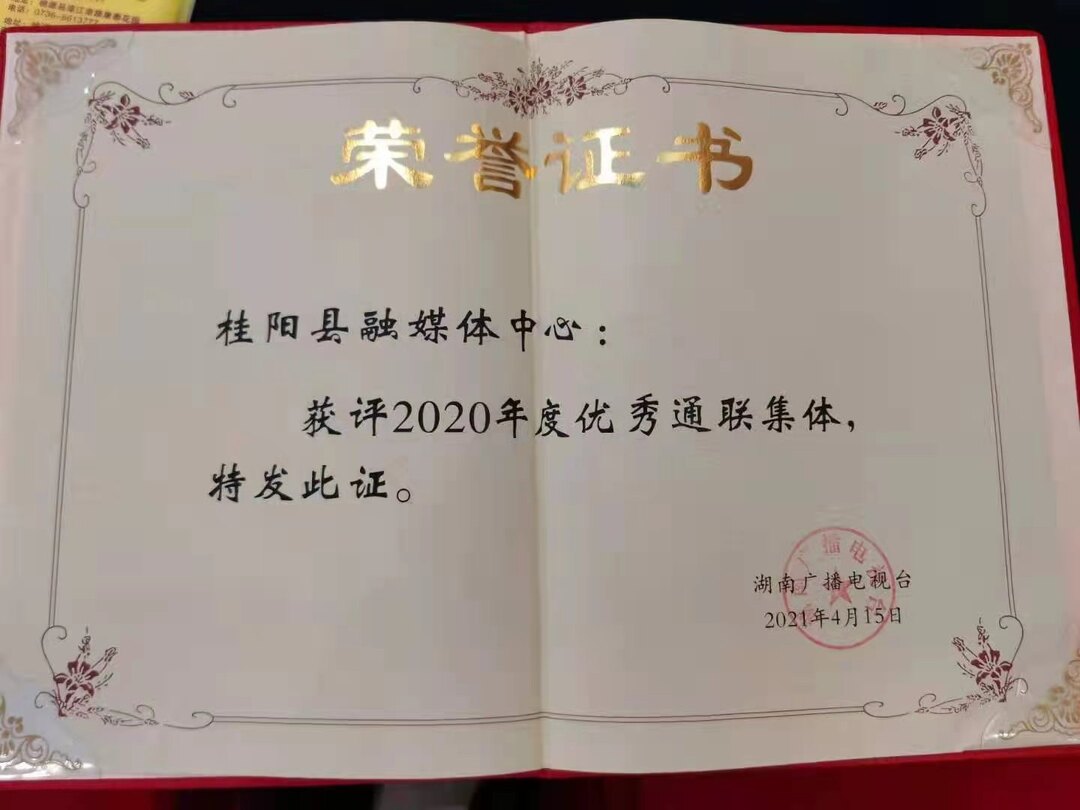 电话：0736-6613777
荣誉证书
桂阳县融媒体中心：
获评2020年度优秀通联集体，
特发此证。
湖南广播电视台
2021年4月15日